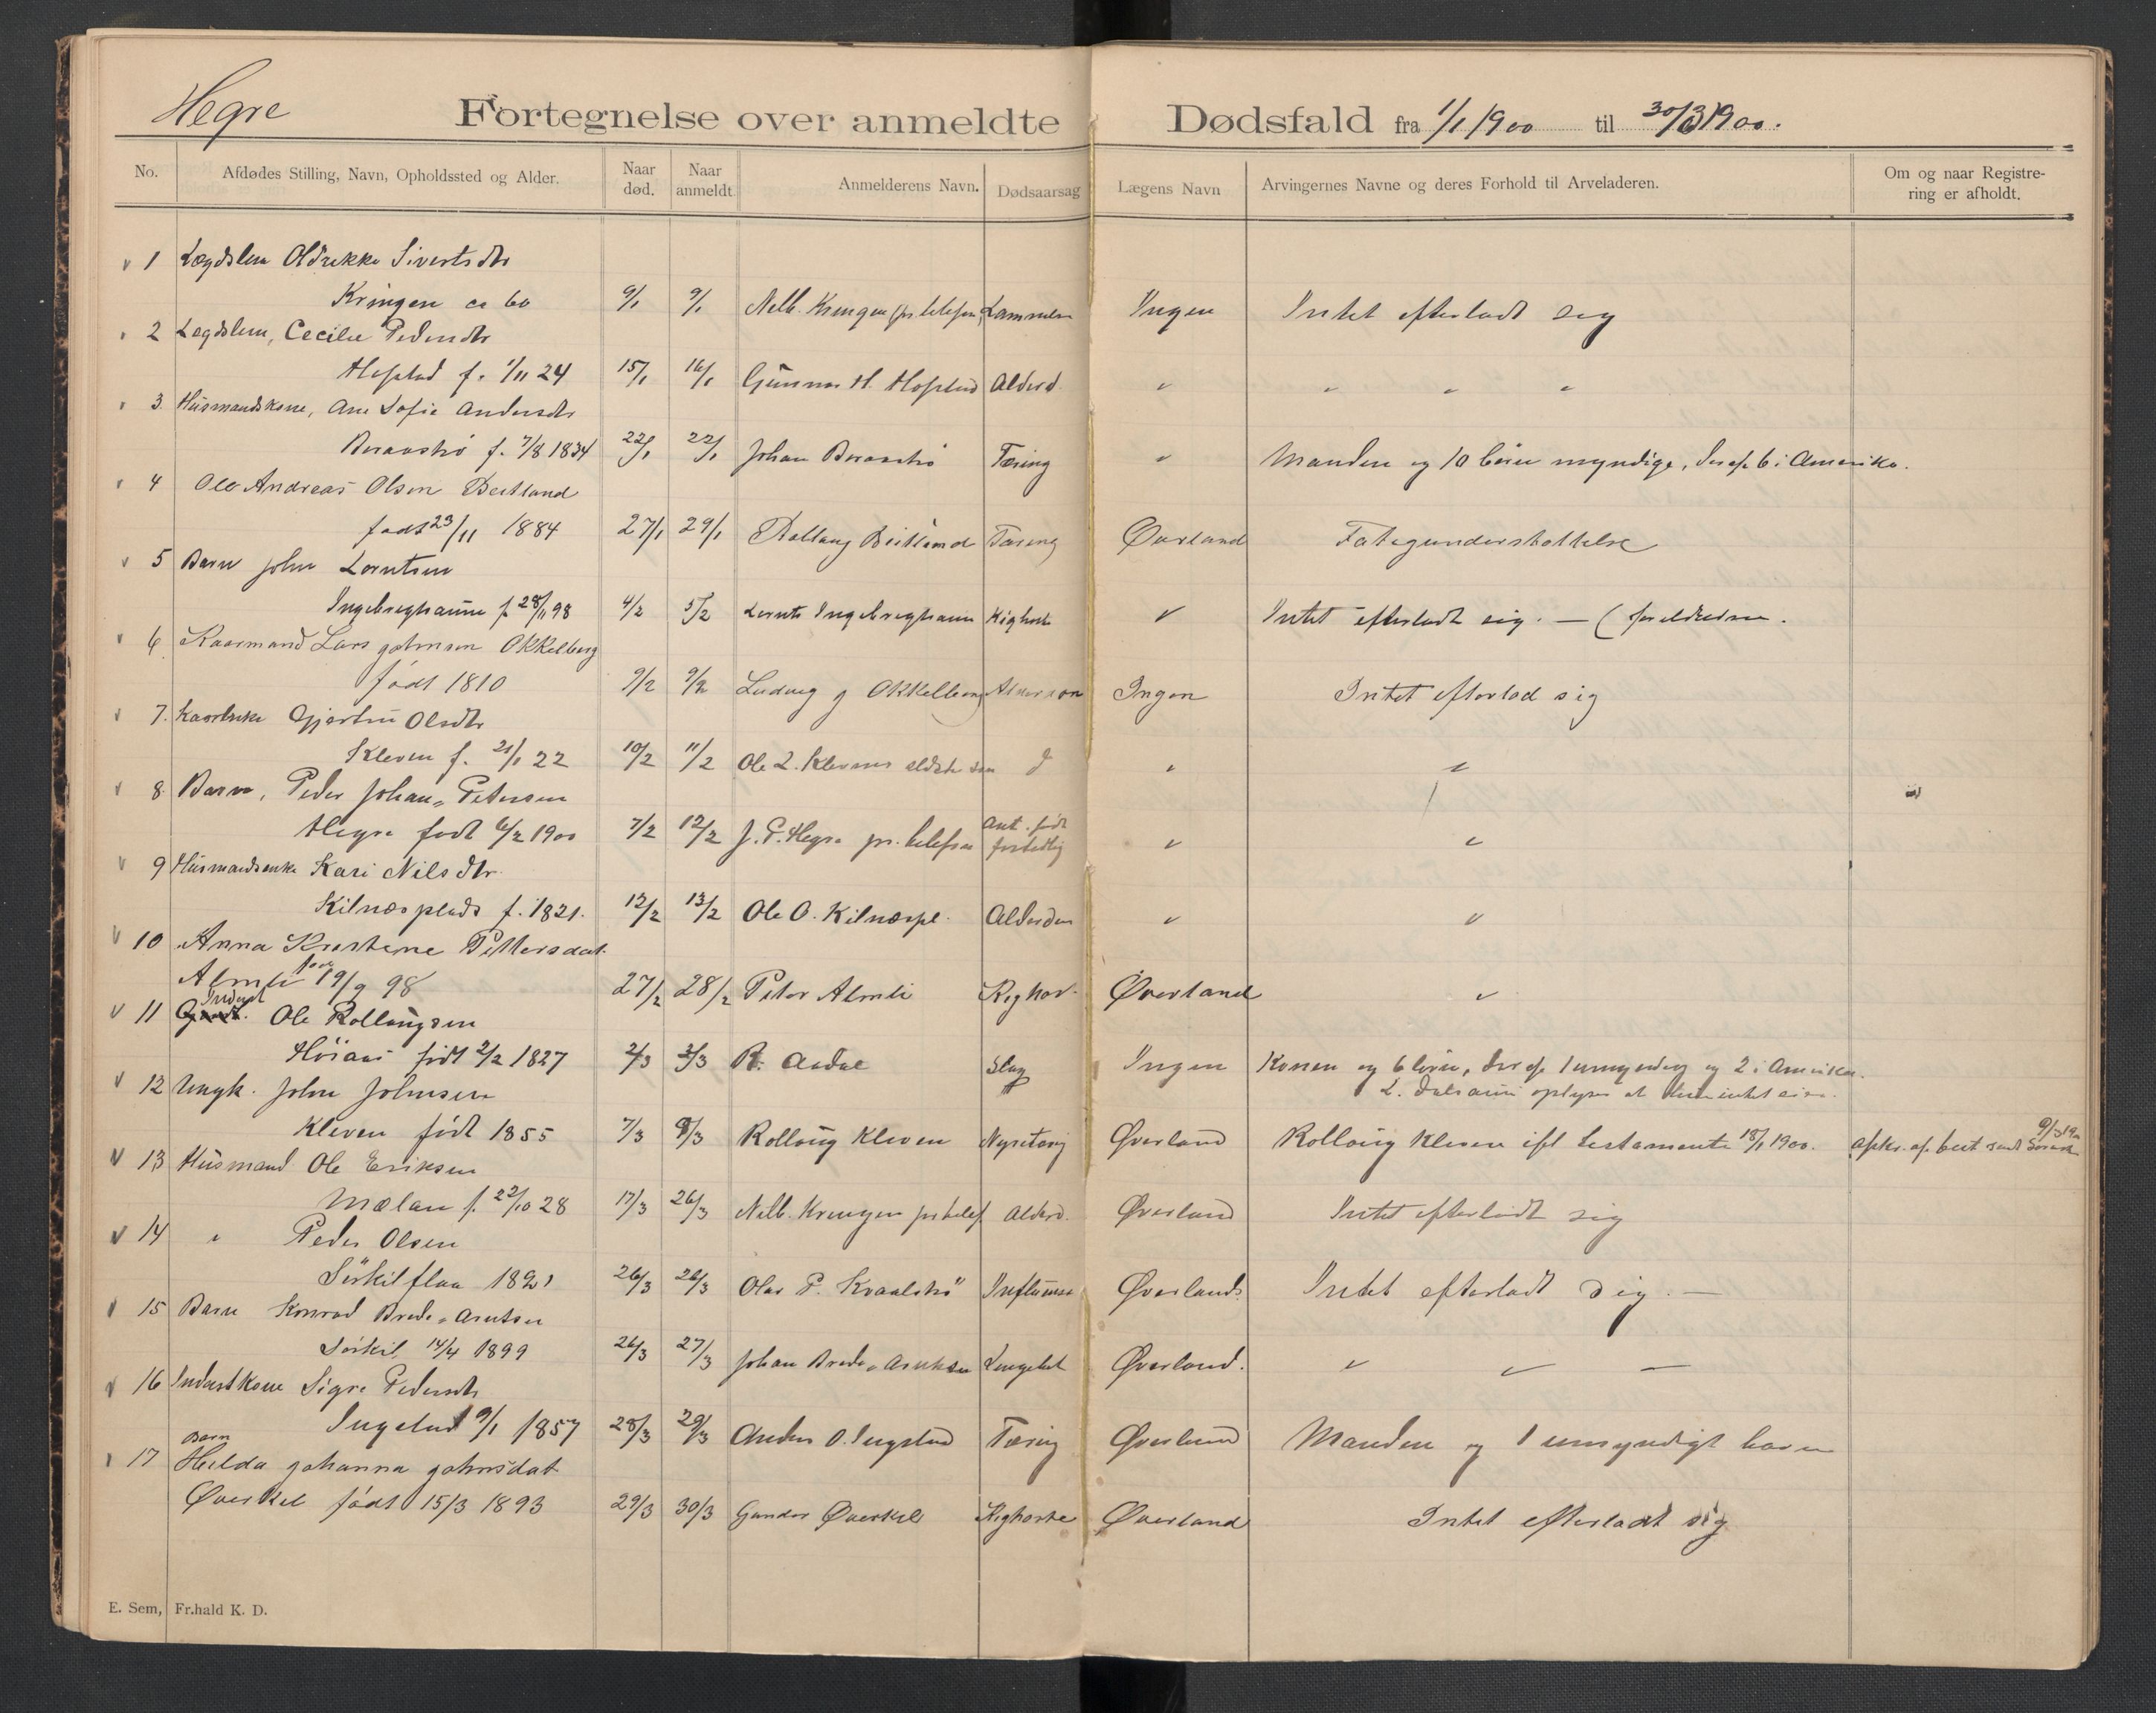 Hegre
Fortegnelse over anmeldte Dødsfald fra 1/1 1900 til 30/3 1900.
No. Afdødes Stilling, Navn, Opholdssted og Alder. Naar død. Naar anmeldt. Anmelderens Navn. Dødsaarsag Lægens Navn Arvingernes Navne og deres Forhold til Arveladeren. Om og naar Registrering er afholdt.
1 Lægdslem Oldrekke Sivertsdtr
Kringen ca 60 9/1 9/1 Nelb. Kringen pr. telefon Lammelse Ingen Intet efterladt sig
2 Lægdslem, Cecilie Pedersdtr
Hofstad f. 1/11 24 15/1 16/1 Gunnar H. Hofstad Alderd. " " " "
3 Husmandskone, Ane Sofie Andersdtr
f. 7/8 1834 22/1 22/1 Johan Tæring " Manden og 10 børn myndige, deraf 6 i Amerika.
4 Ole Andreas Olsen Beitland
født 23/11 1884 27/1 29/1 Rollaug Beitland Tæring Øverland Fatigunderstøttelse
5 Barn John Lorntsen
f. 28/11 98 4/2 5/2 Lornts Kighoste " Intet efterladt sig. — (forældrene.
6 Kaarmand Lars Johnsen Okkelberg
født 1810 9/2 9/2 Ludvig J Okkelberg Alderdom Ingen Intet efterlod sig
7. Gjertru Olsdtr
Kleven f. 21/1 22 10/2 11/2 Ole L. Klevens ældste søn d " "
8 Barn, Peder Johan Petersen
Hegre født 6/2 1900 7/2 12/2 J. P. Hegre pr. telefon Ant. født fortidlig " "
9 Husmandsenke Kari Nilsdtr.
Kilnæsplads f. 1821. 12/2 13/2 Ole O. Kilnæspl. Alderdom " "
10 Anna Kristene Pettersdat.
Almli født 19/9 98 27/2 28/2 Peter Almli Kighos. Øverland "
11 Inderst Ole Rollaugsen
Høiaas født 2/2 1827 2/3 3/3 R. Aasdal Slag Ingen Konen og 6 børn, deraf 1 umyndig og 2 i Amerika.
L. oplyser at intet
12 Ungk. John Johnsen
Kleven født 1855 7/3 8/3 Rollaug Kleven Øverland Rollaug Kleven ifl testamente 18/1 1900. 9/3 1900
13 Husmand Ole Eriksen
Mælan f. 22/10 28 17/3 26/3 Nelb. Kringen pr telef. Alderd. Øverland Intet efterladt sig
14 " Peder Olsen
1821 26/3 26/3 Olav P. Influensa Øverland Intet efterladt sig. —
15 Barn Konrad Arntsen
Sørkil 14/4 1899 26/3 27/3 Johan Arntsen Øverland. " " —
16 Inderstkone Sigri Pedersdtr.
Ingstad 9/1 1857 28/3 29/3 Anders O. Ingstad Tæring Øverland Manden og 1 umyndigt barn
Barn
17 Hilda Johanna Johnsdat
Øverkil født 15/3 1893 29/3 30/3 Gunder Øverkil Kighoste Øverland Intet efterladt sig
E. Sem, Fr.hald K. D.